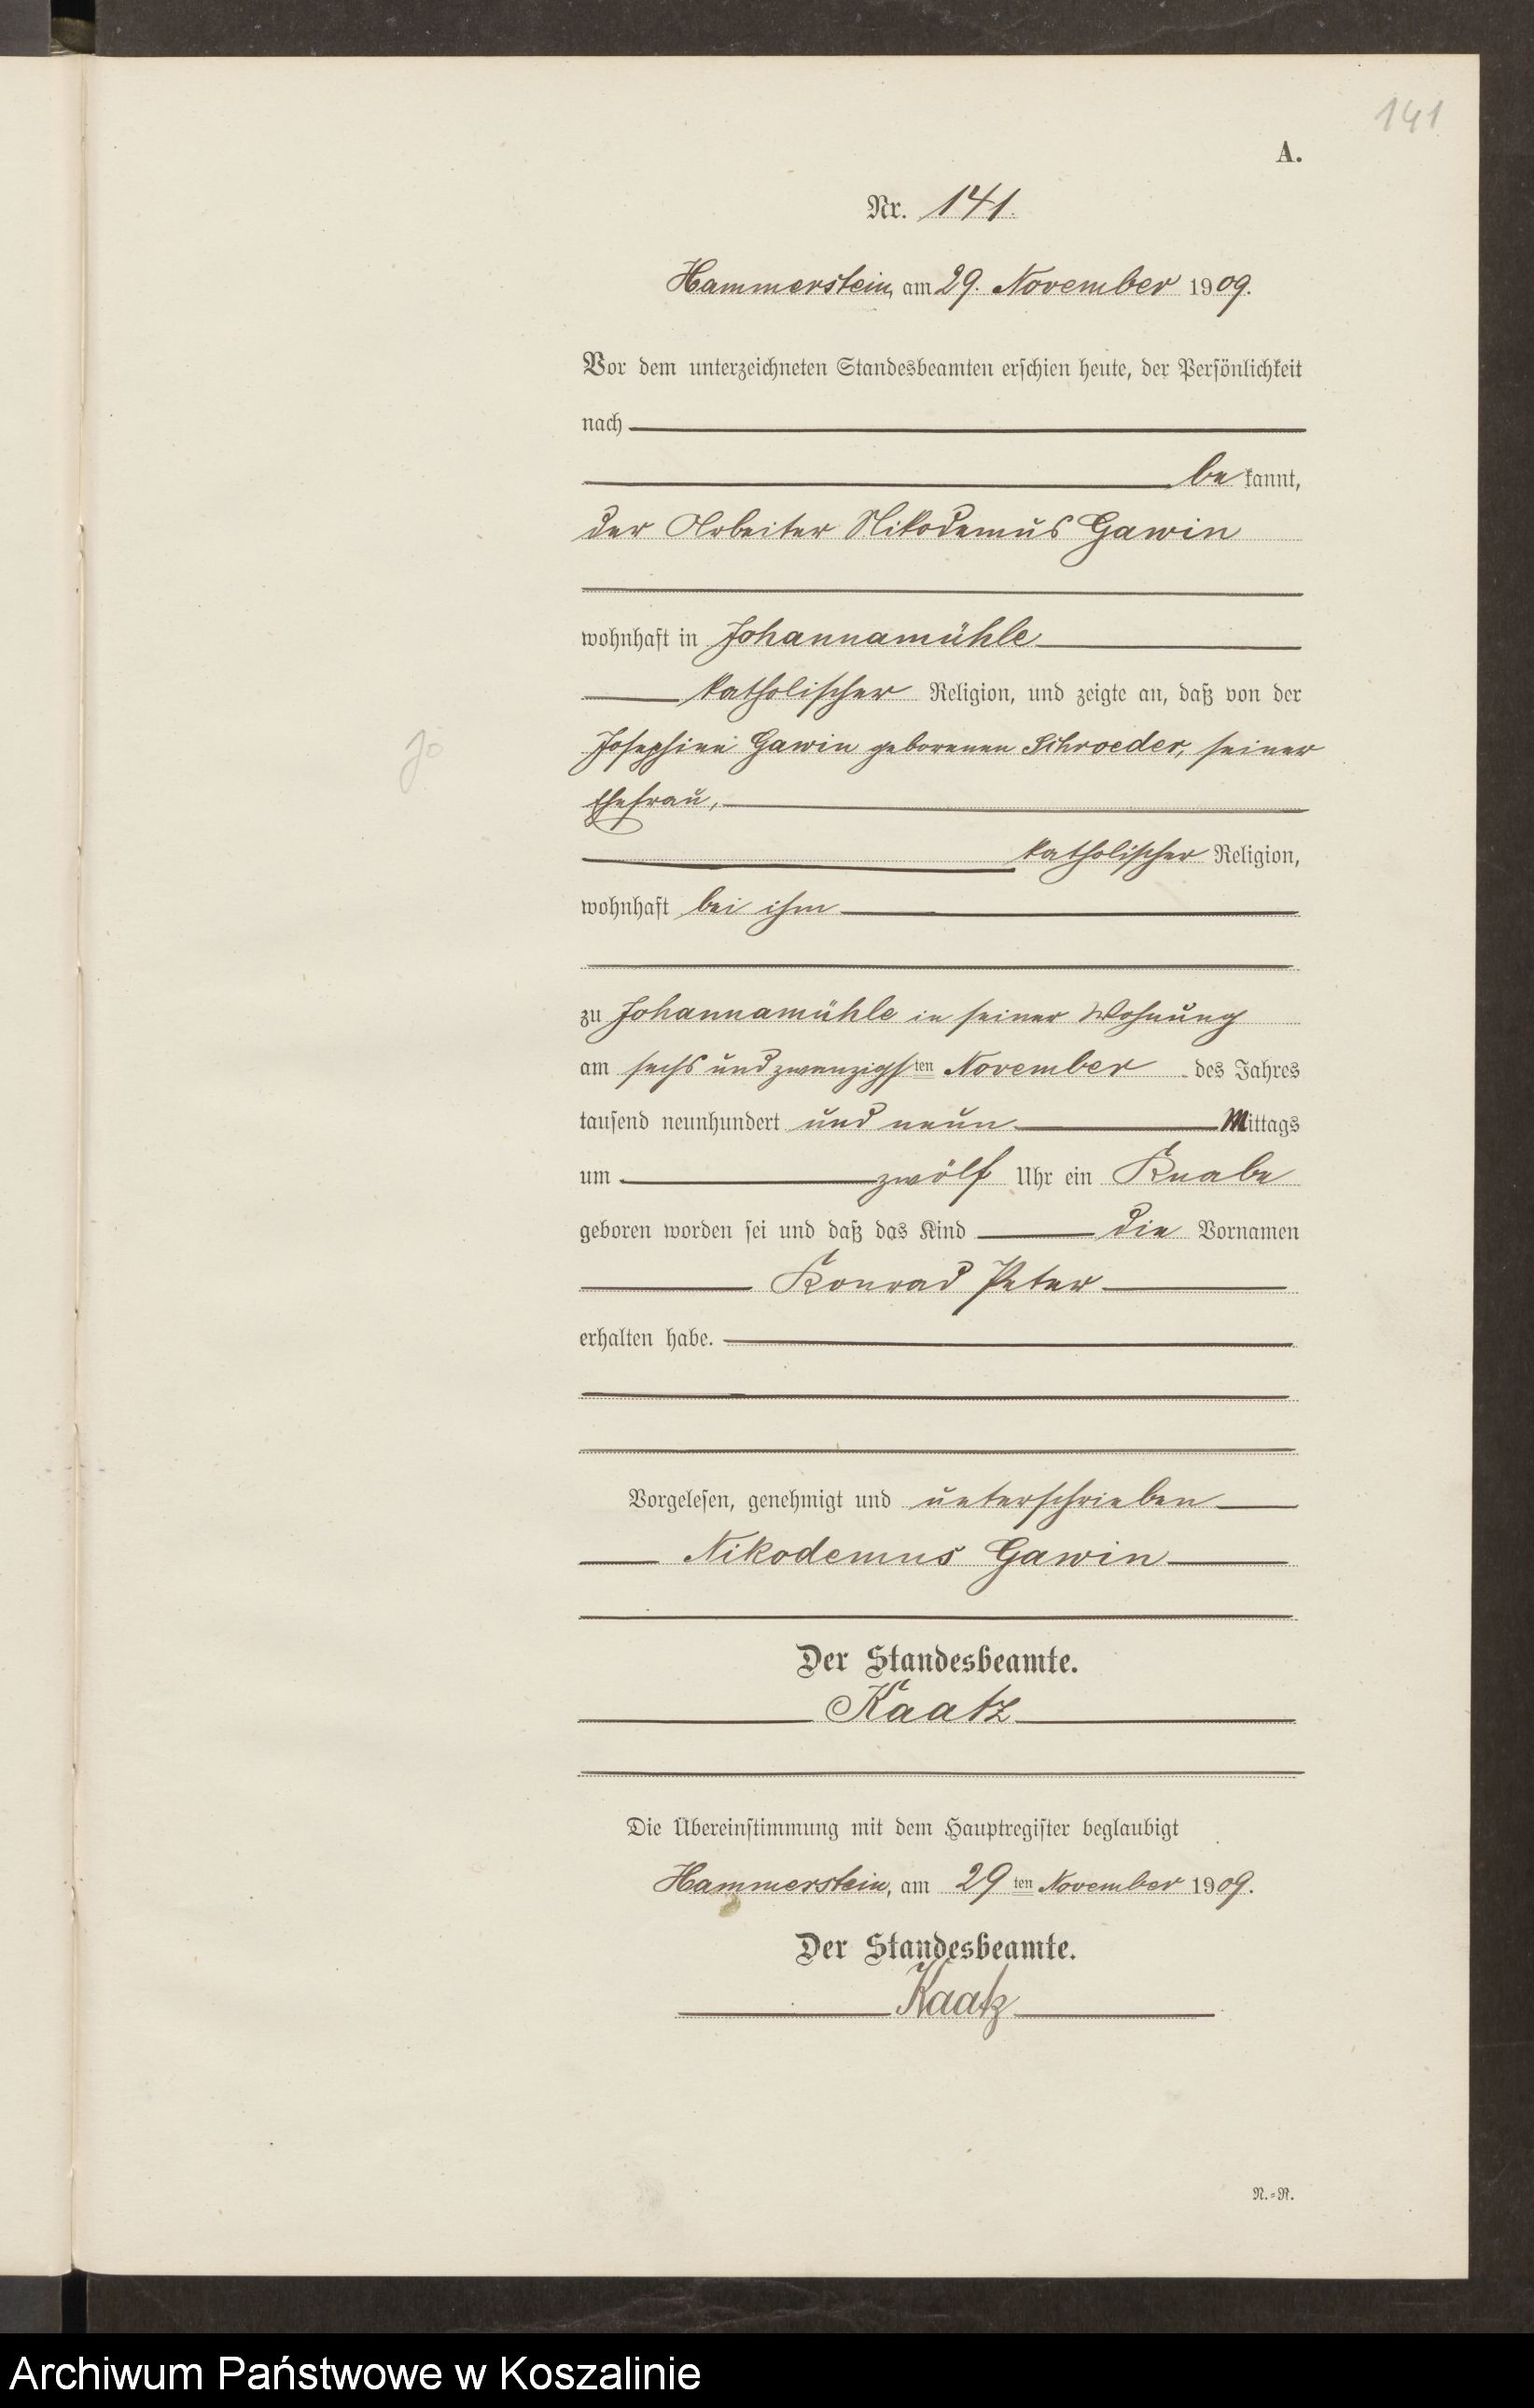 141
A.
Nr. 141.
Hammerstein, am 29. November 1909.
Vor dem unterzeichneten Standesbeamten erschien heute, der Persönlichkeit
nach
be kannt,
der Arbeiter Nikodemus Gawin
wohnhaft in Johannamühle
katholischer Religion, und zeigte an, daß von der
Josephine Gawin geborenen Schroeder, seiner
Ehefrau,
katholischer Religion,
wohnhaft bei ihm
zu Johannamühle in seiner Wohnung
am sechs und zwanzigsten November des Jahres
tausend neunhundert und neun Mittags
um zwölf Uhr ein Knabe
geboren worden sei und daß das Kind die Vornamen
Konrad Peter
erhalten habe.
Jo
Vorgelesen, genehmigt und unterschrieben
Nikodemus Gawin
Der Standesbeamte.
Kaatz
Die Übereinstimmung mit dem Hauptregister beglaubigt
Hammerstein, am 29ten November 1909.
Der Standesbeamte.
Kaatz
N.=R.
Archiwum Państwowe w Koszalinie